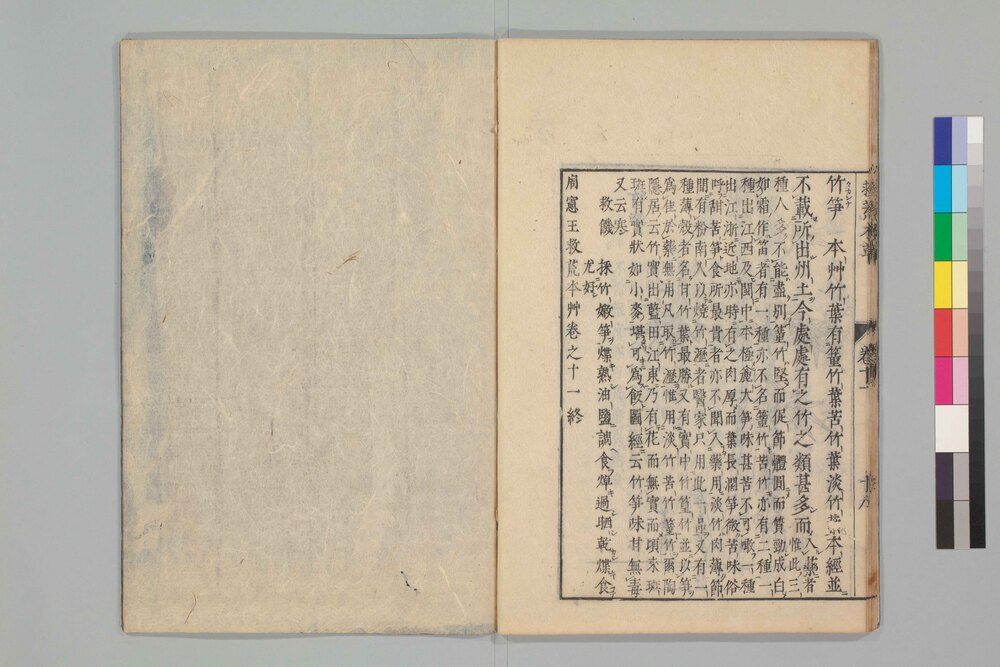 救荒本草 卷十一 十八
竹笋 本艸竹葉有䈽竹葉苦竹葉淡竹葉本經並
不載所出州土今處處有之竹之類甚多而入藥者惟此三
種人多不能盡別䈽竹堅而促節體圓而質勁成白
如霜作笛者有一種亦不名䈽竹苦竹亦有二種一
種出江西及閩中本極麄大笋味甚苦不可噉一種
出江浙近地亦時有之肉厚而葉長濶笋微苦味俗
呼甜苦笋食所最貴者亦不聞入藥用淡竹肉薄節
間有粉南人以燒竹瀝者醫家只用此一品又有一
種薄殼者名甘竹葉最勝又有實中竹篁竹並以笋
爲佳於藥無用凡取竹瀝惟用淡竹苦竹䈽竹爾陶
隱居云竹實出藍田江東乃有花而無實而頃來斑
斑有實狀如小麥堪可爲飯圖經云竹笋味甘無毒
又云寒
救饑 採竹嫩笋煠熟油鹽調食焯過晒乾煠食
尤好
周憲王救荒本艸卷之十一終